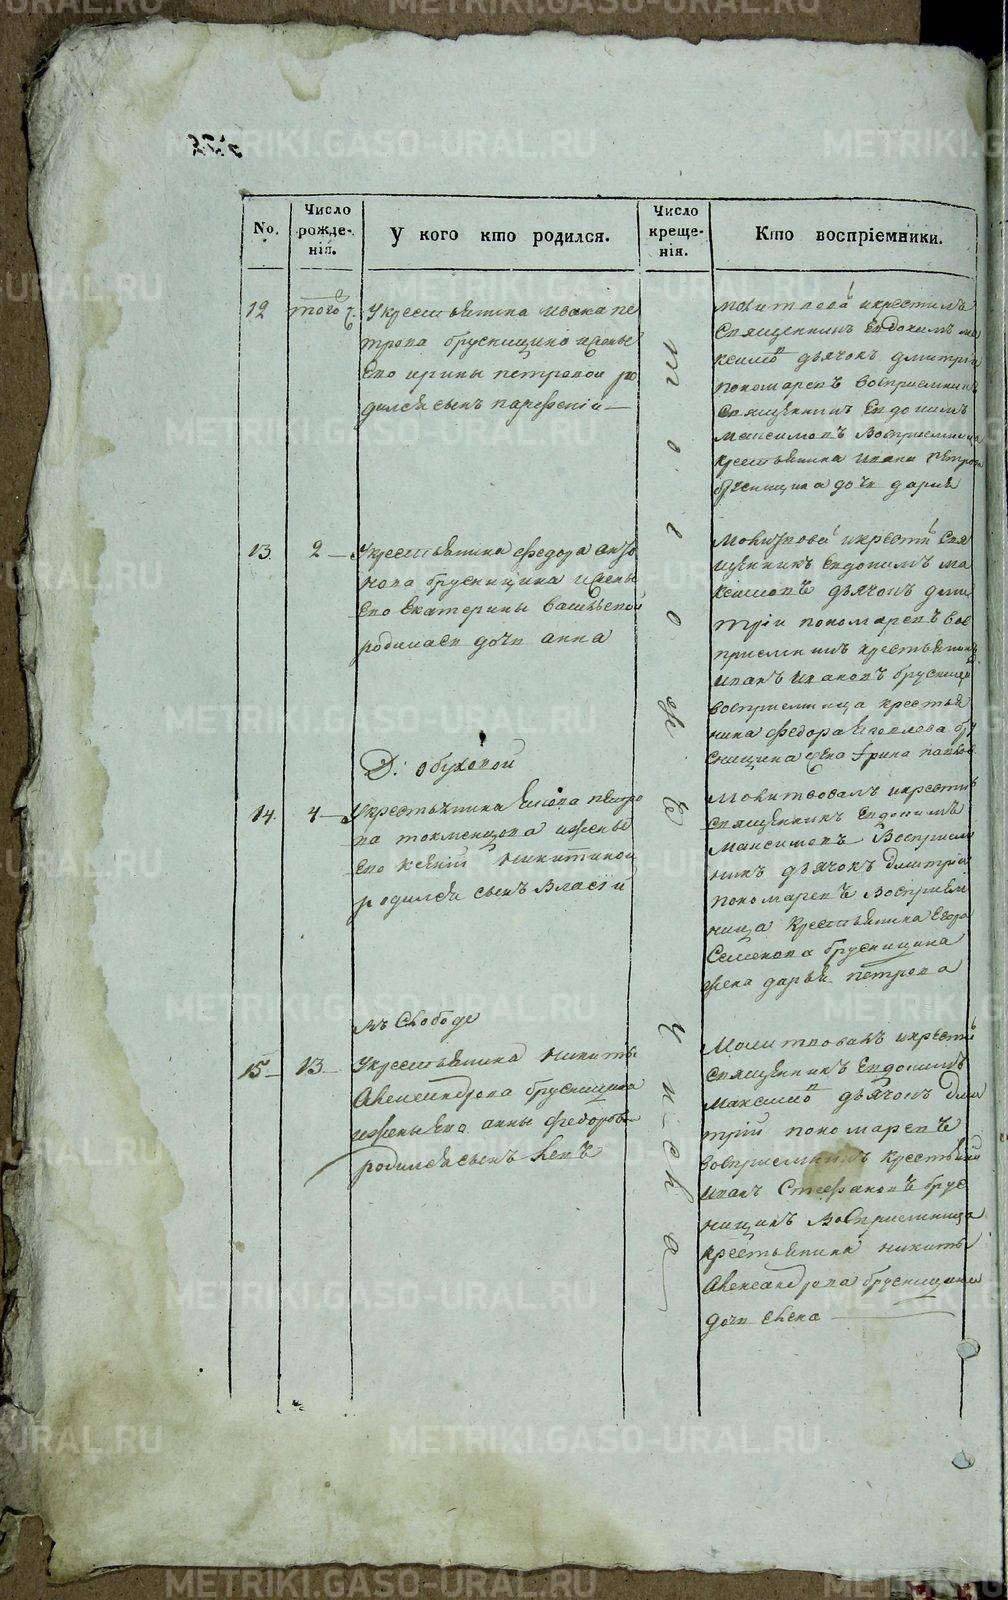 No.
Число
рожде-
нія.
У кого кто родился.
Число
креще-
нія.
Кто воспріемники.
12
того
Укрестьянина ивана пе
трова брусницина ижены
Его ирины петровой ро
дился сынъ парфеній
молитвова икрестилъ
Священникъ Евдокимъ ма
ксимо дьячокъ дмитрій
пономаревъ восприемникъ
Священникъ Евдокимъ
максимовъ Восприемница
крестьянина ивана петрова
брусницина дочь дарья
13
2
Укрестьянина федора
брусницина ижены
Его Екатерины васильевой
родилась дочь анна
Молитвова икрести Свя
щенникъ Евдокимъ ма
ксимовъ дьячокъ дми
трій пономаревъ вос
приемникъ крестьянинъ
иванъ ивановъ брусницы
восприемница крестья
нина федора бру
сницина жена
Д: обуховой
14
4
Укрестьянина петро
ва токменцова ижены
Его ксеніи никитиной
родился сынъ Власій
Молитвовалъ икрестилъ
Священникъ Евдокимъ
Максимовъ Восприем
никъ дьячокъ дмитрій
пономаревъ Восприем
ница Крестьянина Егора
Семенова брусницина
жена дарья петрова
въ Слободе
15
13
Укрестьянина никиты
Александрова брусницина
ижены Его анны федоровы
родился сынъ левъ
Молитвовалъ икрести
Священникъ Евдокимъ
Максимо дьячокъ дми
трій пономаревъ
восприемникъ крестьянин
иванъ Стефановъ брус
ницинъ Восприемница
крестьянина никиты
Александрова брусницина
дочь
того же
числа
METRIKI.GASO-URAL.RU